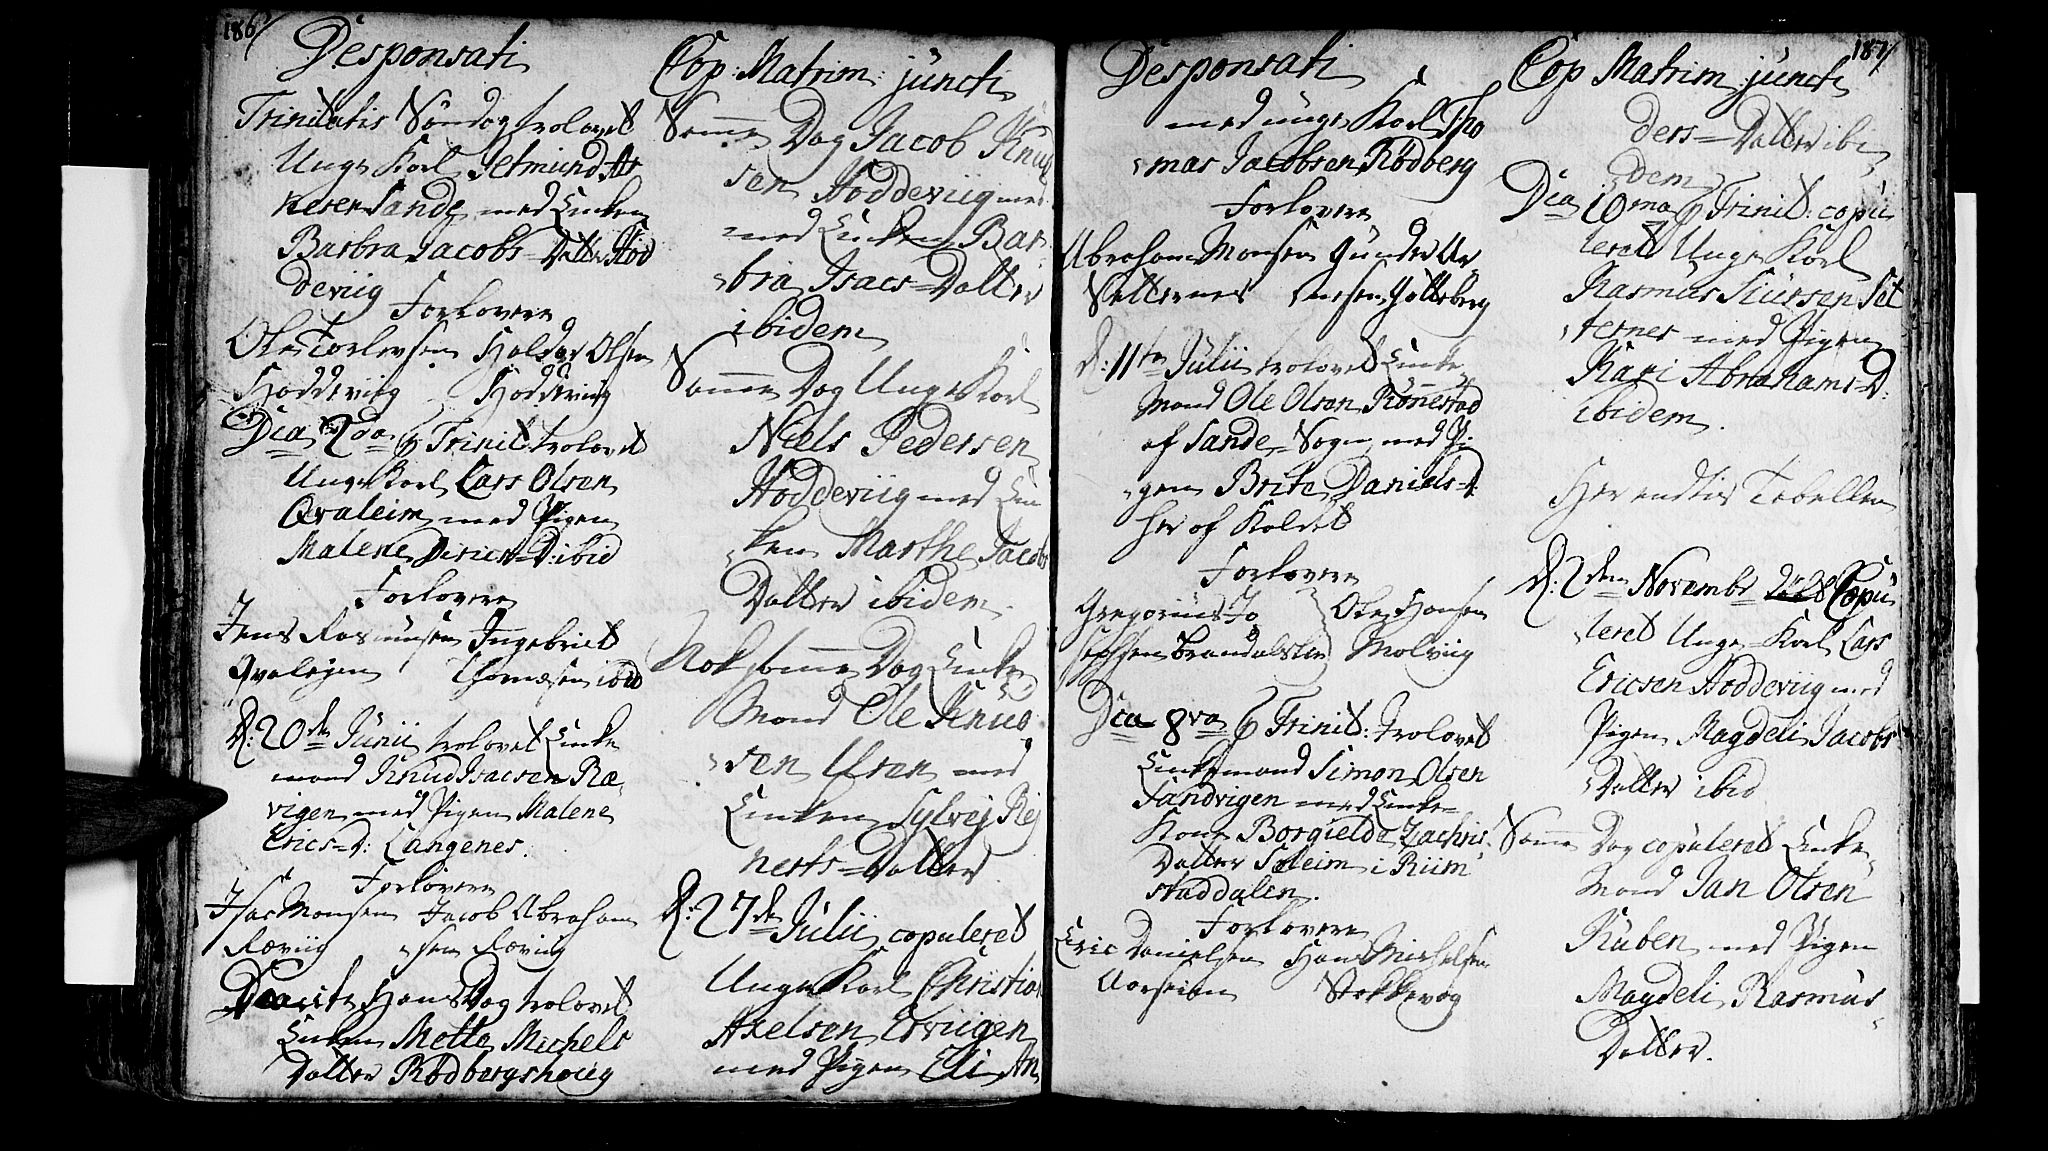 186
Desponsati
Trinitatis Søndag trolovet
Unge Karl Jetmund As
neser Sande med Enken
Barbra Jacobs-Datter Hod
deviig
Forlovere
Ole Torlevsen Haldor Olsen
Hoddeviig Hoddeviig
Dca 2da p Trinit trolovet
Unge Karl Lars Olsen
Qvaleim med Pigen
Malene Dirics-D: ibid
Forlovere
Jens Rasmusen Ingebrict
Qvalejm Thomæsen ibid
D: 20de Junii trolovet Enke
mand Knud Isacsen Ræ
vigen med Pigen Malene
Erics-D: Langenes.
Forlovere
Isac Monsen Jacob Abraham
Ræviig sen Ræviig
Hans Dag trolovet
Enken Mette Michels
Datter Rødbergshoug
Cop: Matrim: juncti
Samme Dag Jacob Knud
sen Hoddeviig med
med Enken Bar
bra Isacs-Datter
ibidem
Samme Dag Unge Karl
Niels Pedersen
Hoddeviig med En
ken Marthe Jacobs
Datter ibidem.
Nok samme Dag Enke
Mand Ole Knud
sen med
Enken Sylvej Rej
nerts-Datter
D: 27de Julii copuleret
Unge Karl Christian
Axelsen Erviigen
med Pigen Eli An
187
Desponsati
med unge Karl Tho
mas Jacobsen Rødberg
Forlovere
Abraham Monsen Gunder
Setternes
D: 11te Julii trolovet Enke
Mand Ole Olsen Rønestad
af Sande-Sogn med Pi
gen Brite Daniels-D:
her af Kaldet
Forlovere
Gregorius Jo Ole Hansen
sephsen Brandalstra Molviig
Dca 8va p Trinit: trolovet
Enkemand Simon Olsen
Sandvigen med Enke-
Kone Borgielde Zachris
Datter Soleim i Riim
staddalen.
Forlovere
Eric Danielsen Hans Michelsen
Aarseim Stokkevog
Cop Matrim juncti
ders-Datter ibi
dem
Dca 10ma p Trinit: copu
leret Unge Karl
Rasmus Siursen Set
ternes med Pigen
Kari Abrahams-D:
ibidem.
Her endtes Tabellen
D: 2den Novembr Copu
leret Unge Karl Lars
Ericsen Hoddeviig med
Pigen Magdeli Jacobs
Datter ibid
Samme Dag copuleret Enke
Mand Jan Olsen
Ruben med Pigen
Magdeli Rasmus
Datter.